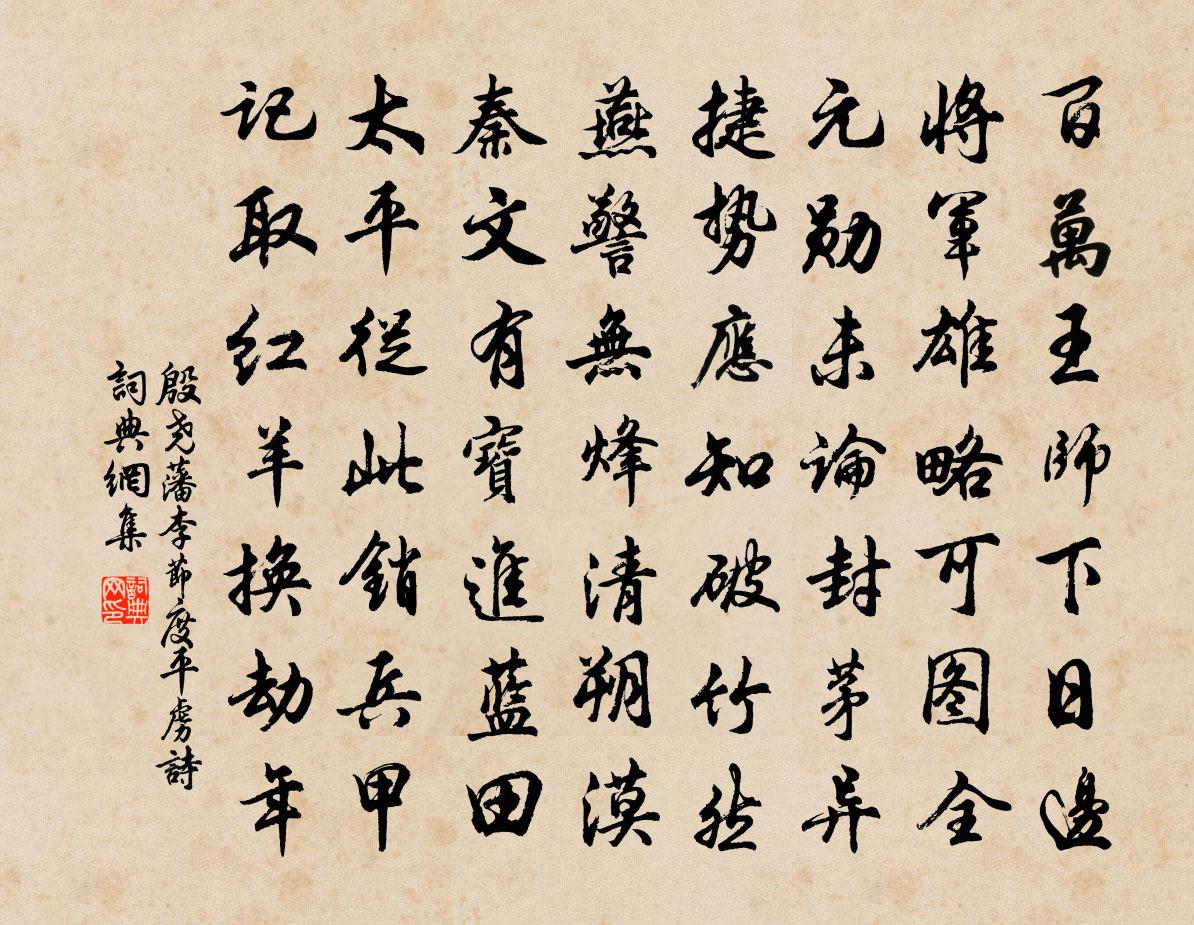 百萬王師下日邊
將軍雄略可图全
元勋未論封茅异
捷势應知破竹然
燕警無烽清朔漠
秦文有寶進藍田
太平從此銷兵甲
记取红羊换劫年
殷尧藩李節度平虏詩
詞典網集
詞典网印